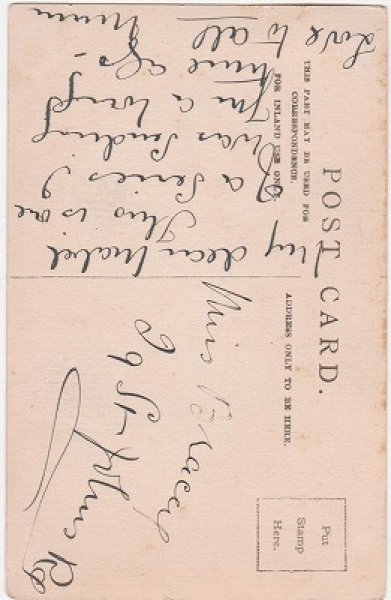 POST CARD.
THIS PART MAY BE USED FOR
CORRESPONDENCE.
FOR INLAND USE ONLY.
ADDRESS ONLY TO BE HERE.
Put
Stamp
Here.
My dear Mabel
This is one
of a series I
was sending
I'm a wong
time ago-
Mum
Love to all
Miss B Lacey
29 St Johns Rd